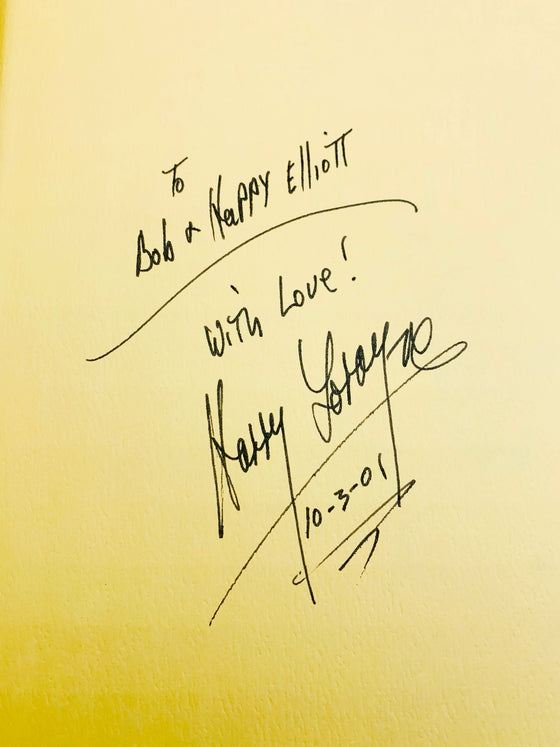 To
Bob & HaPPY ElliOTT
With Love!
Harry Lorayne
10-3-01